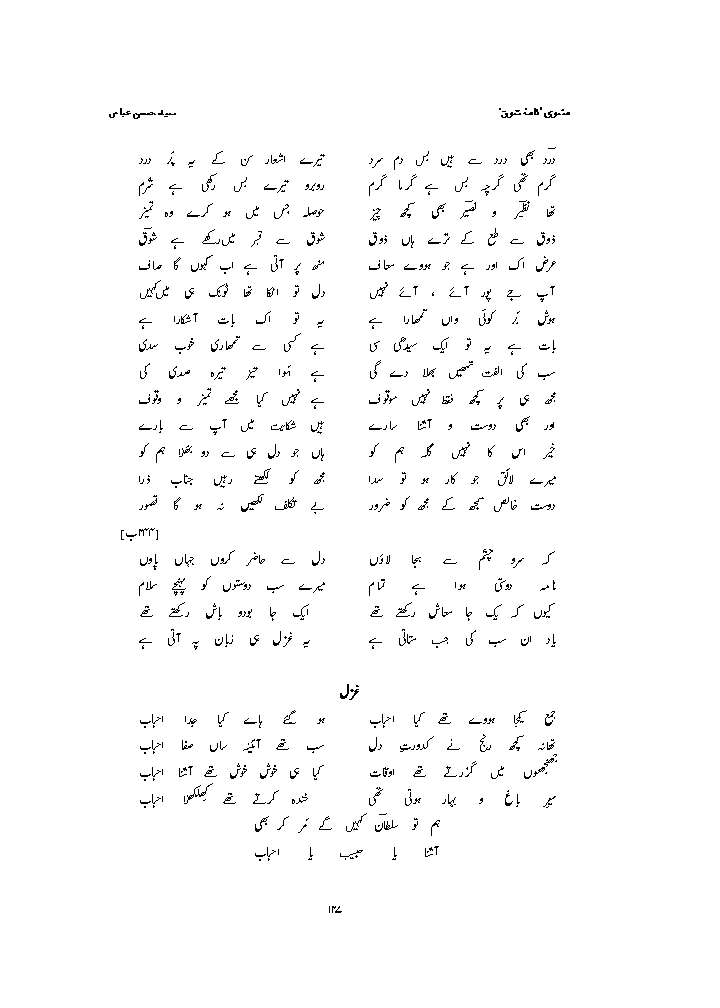 مثنوی 'نامۂ شوق' سید حسن عباس
درد بھی درد سے ہیں بس دم سرد تیرے اشعار سن کے یہ پُر درد
گرم تھی گرچہ بس ہے گرما گرم روبرو تیرے بس رکھی ہے شرم
تھا نظیر و نصیر بھی کچھ چیز حوصلہ جس میں ہو کرے وہ تمیز
ذوق سے طبع کے ترے ہاں ذوق شوق سے قبر میں رکھے ہے شوق
عرض اک اور ہے جو ہووے معاف منھ پر آتی ہے اب کہوں گا صاف
آپ جے پور آئے ، آئے نہیں دل تو اٹکا تھا ٹونک ہی میں کہیں
ہوش پر کوئی واں تمھارا ہے یہ تو اک بات آشکارا ہے
بات ہے یہ تو ایک سیدھی سی ہے کسی سے تمھاری خوب سدی
سب کی الفت تمھیں بھلا دے گی ہے ہُوا تیز تیرہ صدی کی
مجھ ہی پر کچھ فقط نہیں موقوف ہے نہیں کیا مجھے تمیز و وقوف
اور بھی دوست و آشنا سارے ہیں شکایت میں آپ سے بارے
خیر اس کا نہیں گلہ ہم کو ہاں جو دل ہی سے دو بھلا ہم کو
میرے لائق جو کار ہو تو سدا مجھ کو لکھتے رہیں جناب ذرا
دوست خالص سمجھ کے مجھ کو ضرور بے تکلف لکھیں نہ ہو گا قصور
[۲۳۳ب]
کہ سرو چشم سے بجا لاؤں دل سے حاضر کروں جہاں پاوں
نامہ دوستی ہوا ہے تمام میرے سب دوستوں کو پہنچے سلام
کیوں کہ یک جا معاش رکھتے تھے ایک جا بودو باش رکھتے تھے
یاد ان سب کی جب ستاتی ہے یہ غزل ہی زبان پہ آتی ہے
غزل
جمع یکجا ہووے تھے کیا احباب ہو گئے ہاے کیا جدا احباب
تھا نہ کچھ رنج نے کدورتِ دل سب تھے آئینہ ساں صفا احباب
میں گزرتے تھے اوقات کیا ہی خوش خوش تھے آشنا احباب
سیر باغ و بہار ہوتی تھی شدہ کرتے تھے کھلکھلا احباب
ہم تو سلطان کہیں گے مر کر بھی
آشنا یا حبیب یا احباب
۱۲۷